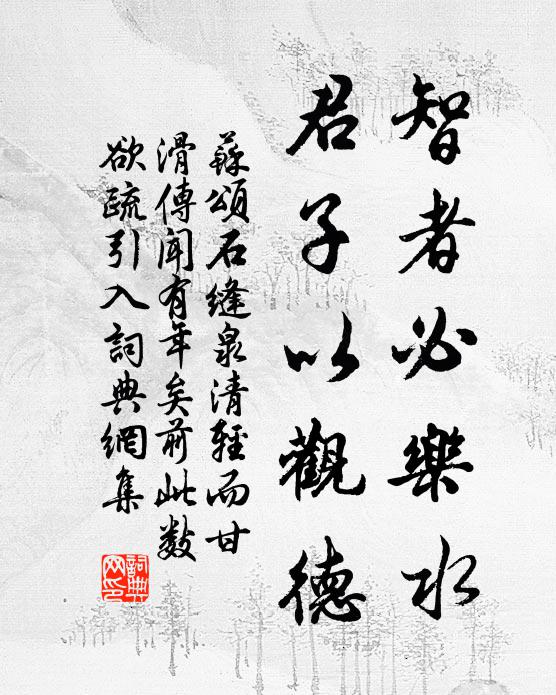 智者必樂水
君子以觀德
蘇頌石縫泉清輕而甘
滑傳聞有年矣前此數
欲疏引入詞典網集
詞典网印